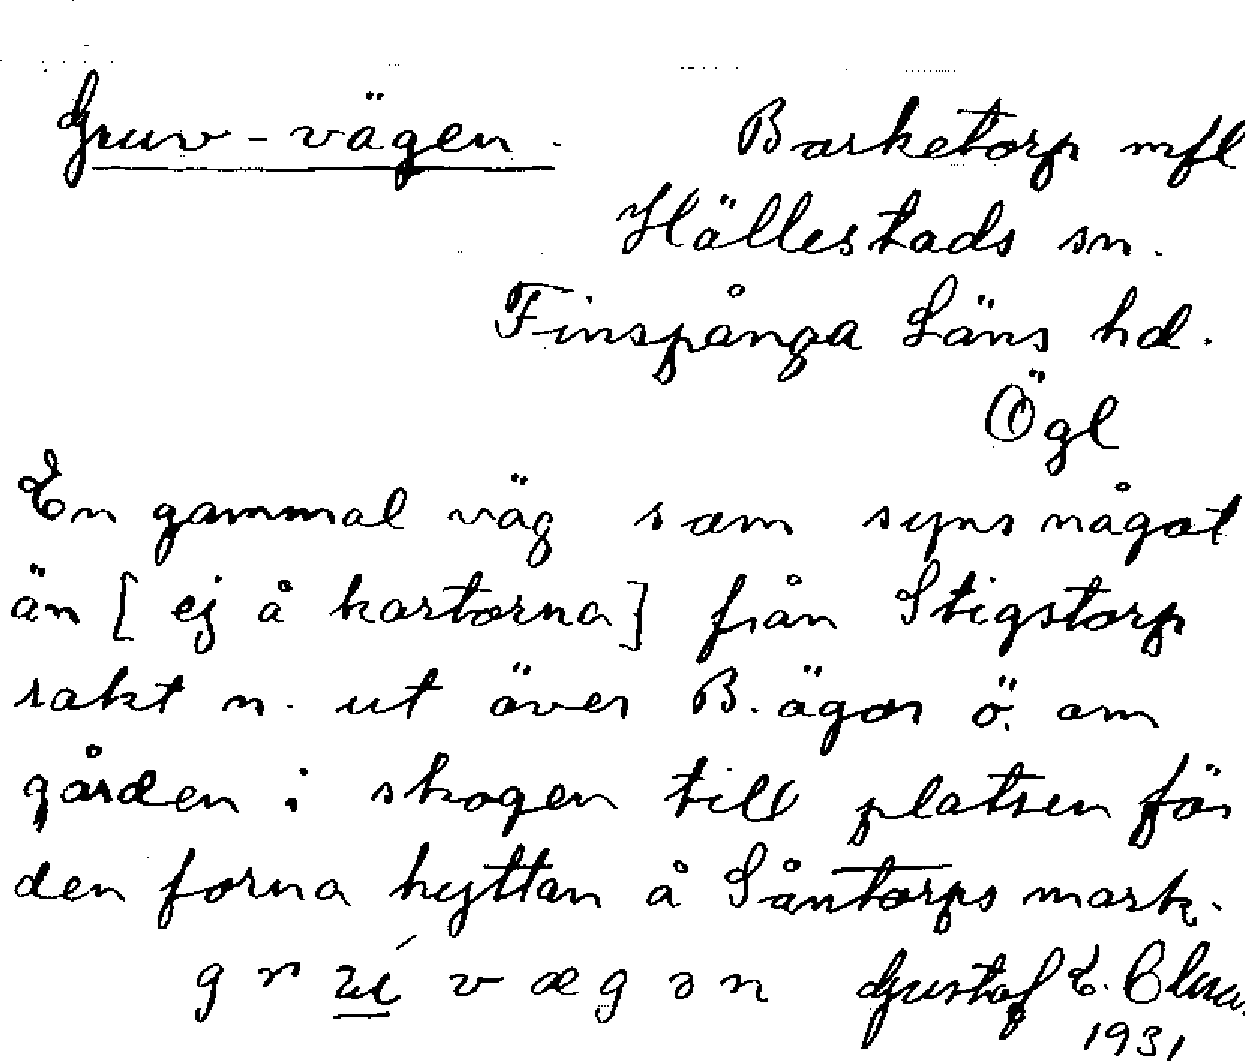 Gruv-vägen. Barketorp mfl
Hällestads sn.
Finspånga Läns hd.
Ögl
En gammal väg som syns något
än [ej å kartorna] från Stigstorp
rakt n. ut över B. ägor ö. om
gården i skogen till platsen för
den forna hyttan å Såntorps mark.
g r ú̲ v æ g ə n Gustaf E.
1931